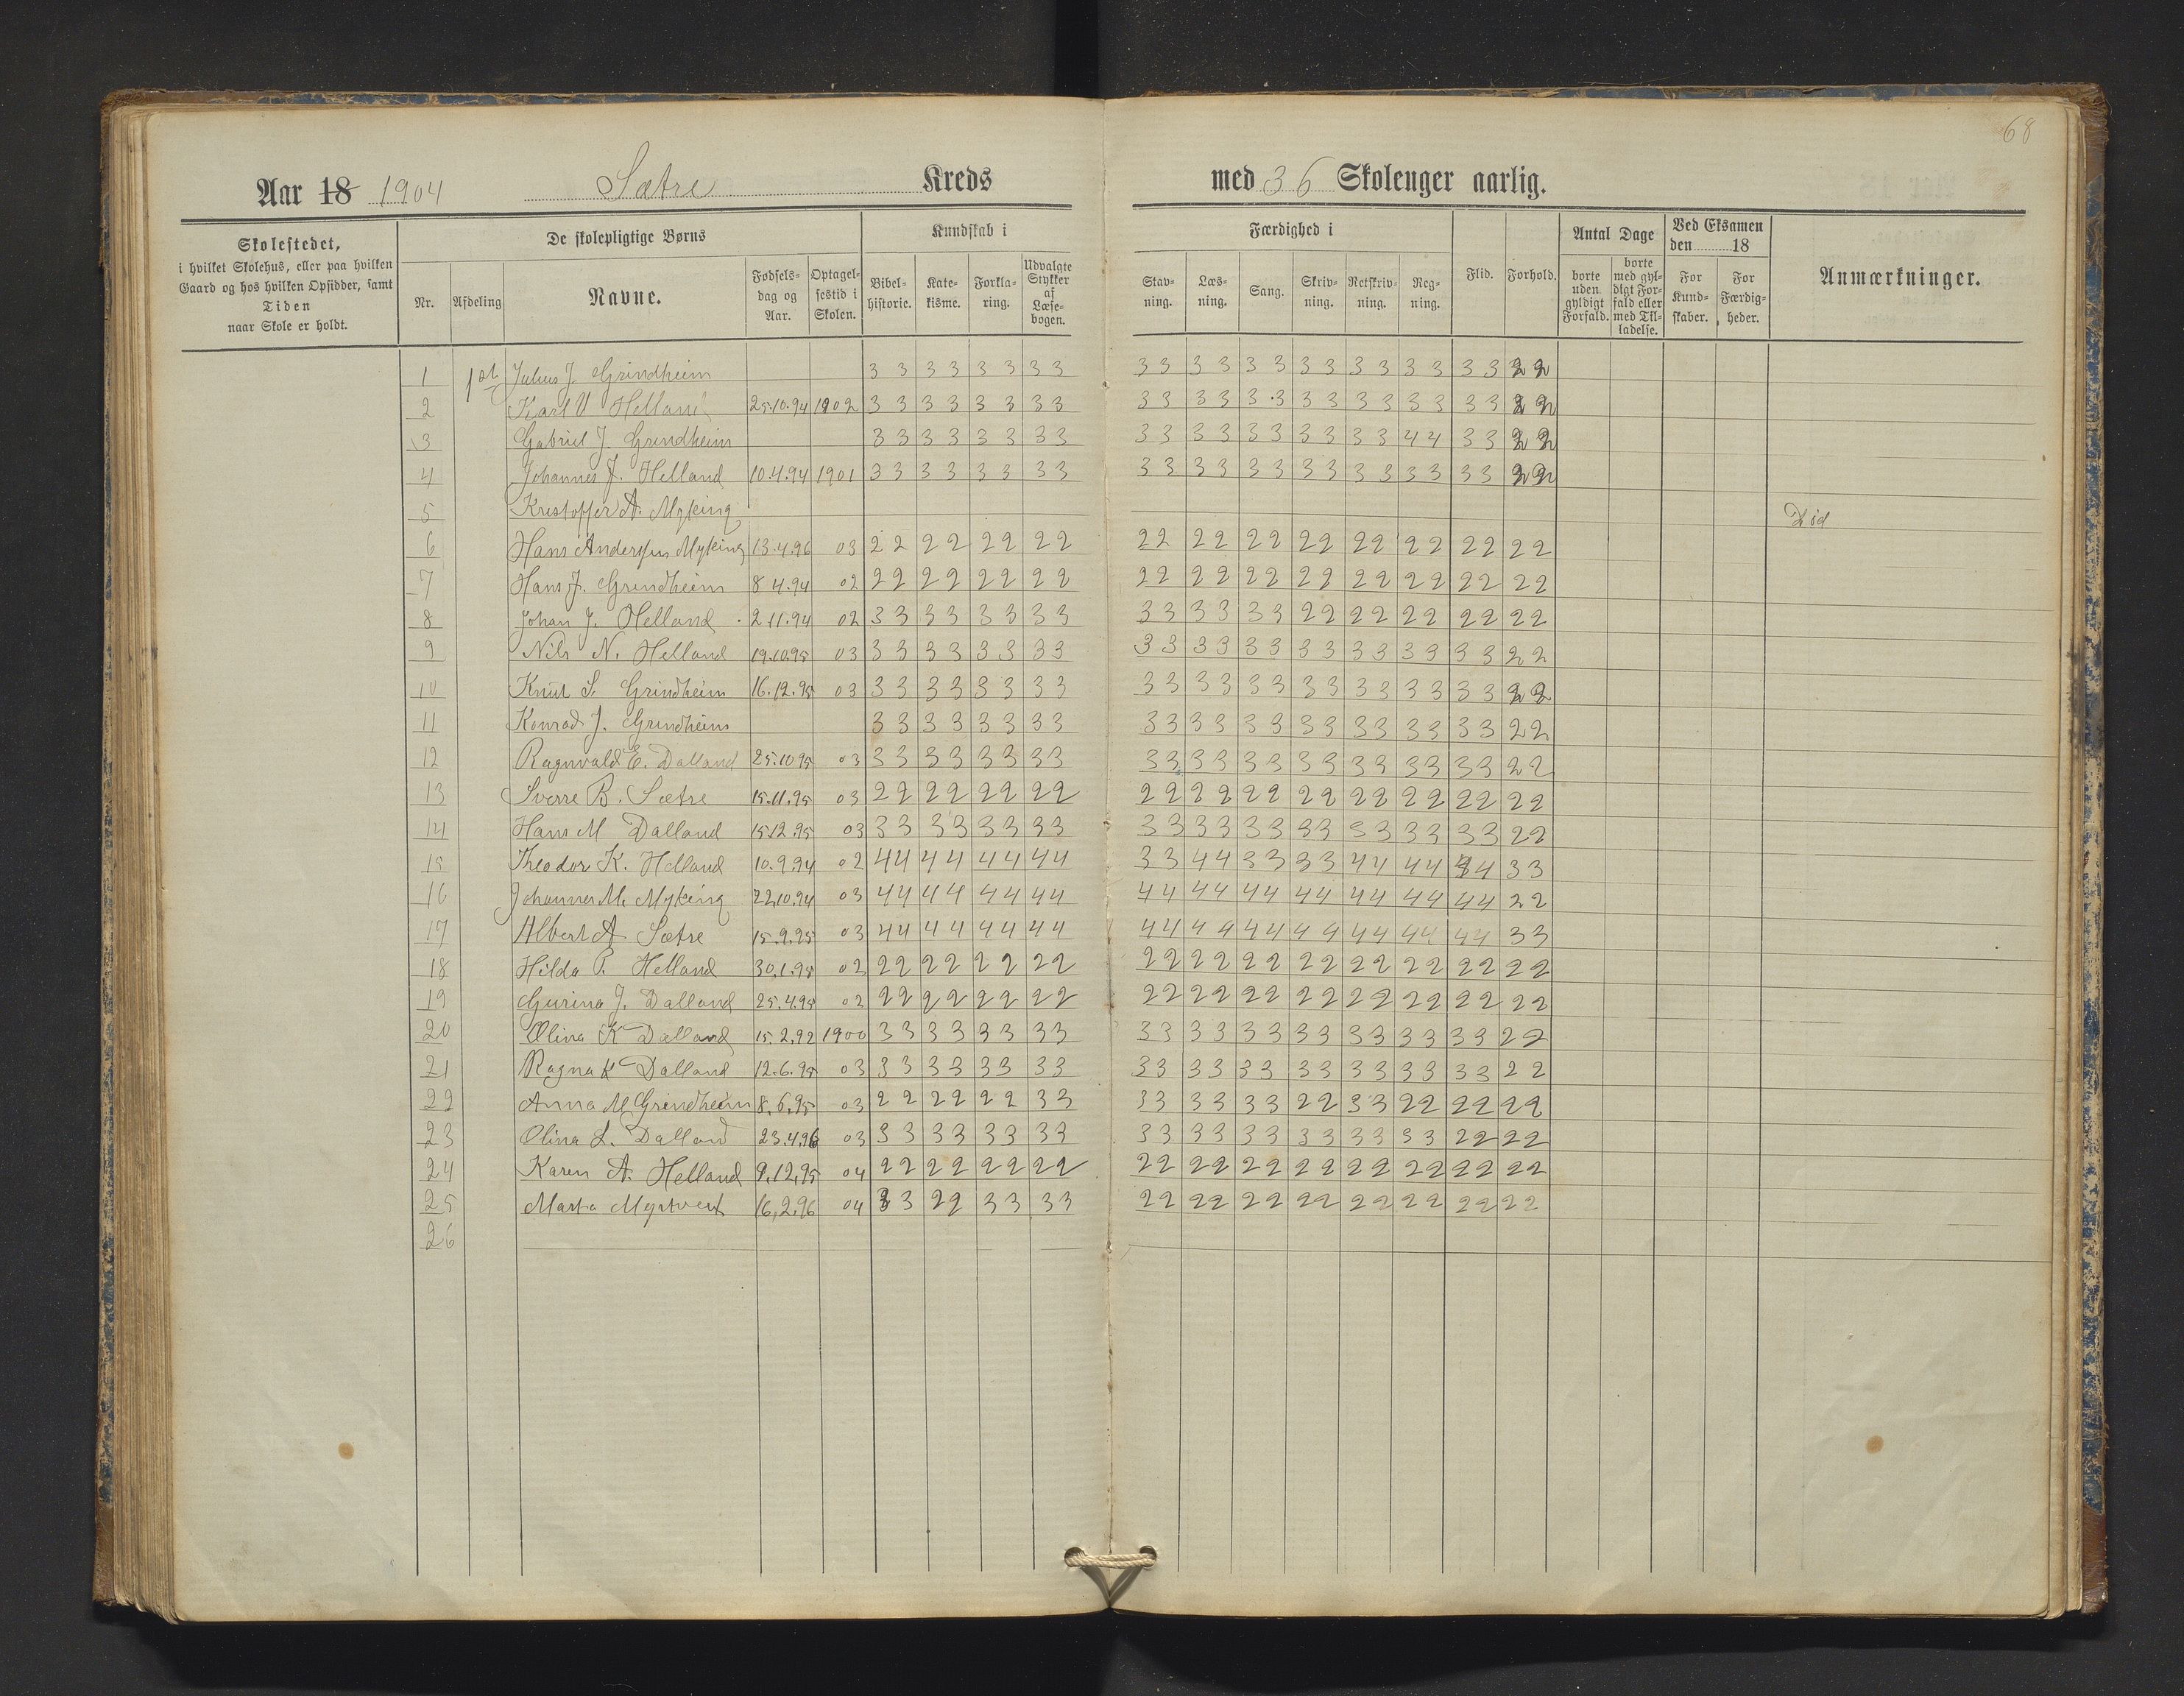 68
Aar 18 1904 Sætre Kreds med 36 Skoleuger aarlig.
Skolestedet, i hvilket Skolehus, eller paa hvilken Gaard og hos hvilken Opsidder, samt Tiden naar Skole er holdt.
De skolepligtige Børns
Nr. Afdeling Navne. Fødselsdag og Aar. Optagelsestid i Skolen.
Kundskab i
Bibelhistorie. Katekisme. Forklaring. Udvalgte Stykker af Læsebogen.
Færdighed i
Stavning. Læsning. Sang. Skrivning. Retskrivning. Regning. Flid. Forhold.
Antal Dage
borte uden gyldigt Forfald. borte med gyldigt Forfald eller med Tilladelse.
Ved Eksamen den 18
For Kundskaber. For Færdigheder.
Anmærkninger.
1 1st Julius J. Grindheim 3 3 3 3 3 3 3 3 3 3 3 3 3 3 3 3 3 3 3 3 3 3 2 2
2 Karl Helland 25.10.94 1902 3 3 3 3 3 3 3 3 3 3 3 3 3 3 3 3 3 3 3 3 3 3 2 2
3 Gabriel J. Grindheim 3 3 3 3 3 3 3 3 3 3 3 3 3 3 3 3 3 3 4 4 3 3 2 2
4 Johannes J. Helland 10.4.94 1901 3 3 3 3 3 3 3 3 3 3 3 3 3 3 3 3 3 3 3 3 3 3 2 2
5 Kristoffer A. Myking Död
6 Hans Andersen Myking 13.4.96 03 2 2 2 2 2 2 2 2 2 2 2 2 2 2 2 2 2 2 2 2 2 2 2 2
7 Hans J. Grindheim 8 4.94 02 2 2 2 2 2 2 2 2 2 2 2 2 2 2 2 2 2 2 2 2 2 2 2 2
8 Johan J. Helland 2 11.94 02 3 3 3 3 3 3 3 3 3 3 3 3 3 3 2 2 2 2 2 2 2 2 2 2
9 Nils N. Helland 19.10.95 03 3 3 3 3 3 3 3 3 3 3 3 3 3 3 3 3 3 3 3 3 3 3 2 2
10 Knut S. Grindheim 16.12.95 03 3 3 3 3 3 3 3 3 3 3 3 3 3 3 3 3 3 3 3 3 3 3 2 2
11 Konrad J. Grindheim 3 3 3 3 3 3 3 3 3 3 3 3 3 3 3 3 3 3 3 3 3 3 2 2
12 Ragnvald E. Dalland 25.10 95 03 3 3 3 3 3 3 3 3 3 3 3 3 3 3 3 3 3 3 3 3 3 3 2 2
13 Sverre B. Sætre 15.11.95 03 2 2 2 2 2 2 2 2 2 2 2 2 2 2 2 2 2 2 2 2 2 2 2 2
14 Hans M Dalland 15.12.95 03 3 3 3 3 3 3 3 3 3 3 3 3 3 3 3 3 3 3 3 3 3 3 2 2
15 Theodor K. Helland 10.9.94 02 4 4 4 4 4 4 4 4 3 3 4 4 3 3 3 3 4 4 4 4 4 4 3 3
16 Johannes M. Myking 22.10.94 03 4 4 4 4 4 4 4 4 4 4 4 4 4 4 4 4 4 4 4 4 4 4 2 2
17 Albert A Sætre 15.9.95 03 4 4 4 4 4 4 4 4 4 4 4 4 4 4 4 4 4 4 4 4 4 4 3 3
18 Hilda P. Helland 30.1.95 02 2 2 2 2 2 2 2 2 2 2 2 2 2 2 2 2 2 2 2 2 2 2 2 2
19 Gurina J. Dalland 25.4.95 02 2 2 2 2 2 2 2 2 2 2 2 2 2 2 2 2 2 2 2 2 2 2 2 2
20 Olina K Dalland 15.2.92 1900 3 3 3 3 3 3 3 3 3 3 3 3 3 3 3 3 3 3 3 3 3 3 2 2
21 Ragna K Dalland 12.6.95 03 3 3 3 3 3 3 3 3 3 3 3 3 3 3 3 3 3 3 3 3 3 3 2 2
22 Anna M Grindheim 8.6.95 03 2 2 2 2 2 2 3 3 3 3 3 3 3 3 2 2 3 3 2 2 2 2 2 2
23 Olina L. Dalland 23.4.96 03 3 3 3 3 3 3 3 3 3 3 3 3 3 3 3 3 3 3 3 3 2 2 2 2
24 Karen A. Helland 9.12.95 04 2 2 2 2 2 2 2 2 2 2 2 2 2 2 2 2 2 2 2 2 2 2 2 2
25 Marta Myrtvedt 16.2.96 04 3 3 2 2 3 3 3 3 2 2 2 2 2 2 2 2 2 2 2 2 2 2 2 2
26